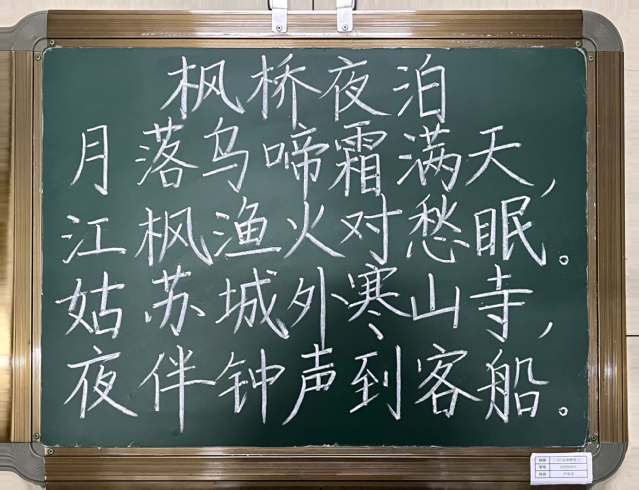 枫桥夜泊
月落乌啼霜满天，
江枫渔火对愁眠。
姑苏城外寒山寺，
夜伴钟声到客船。